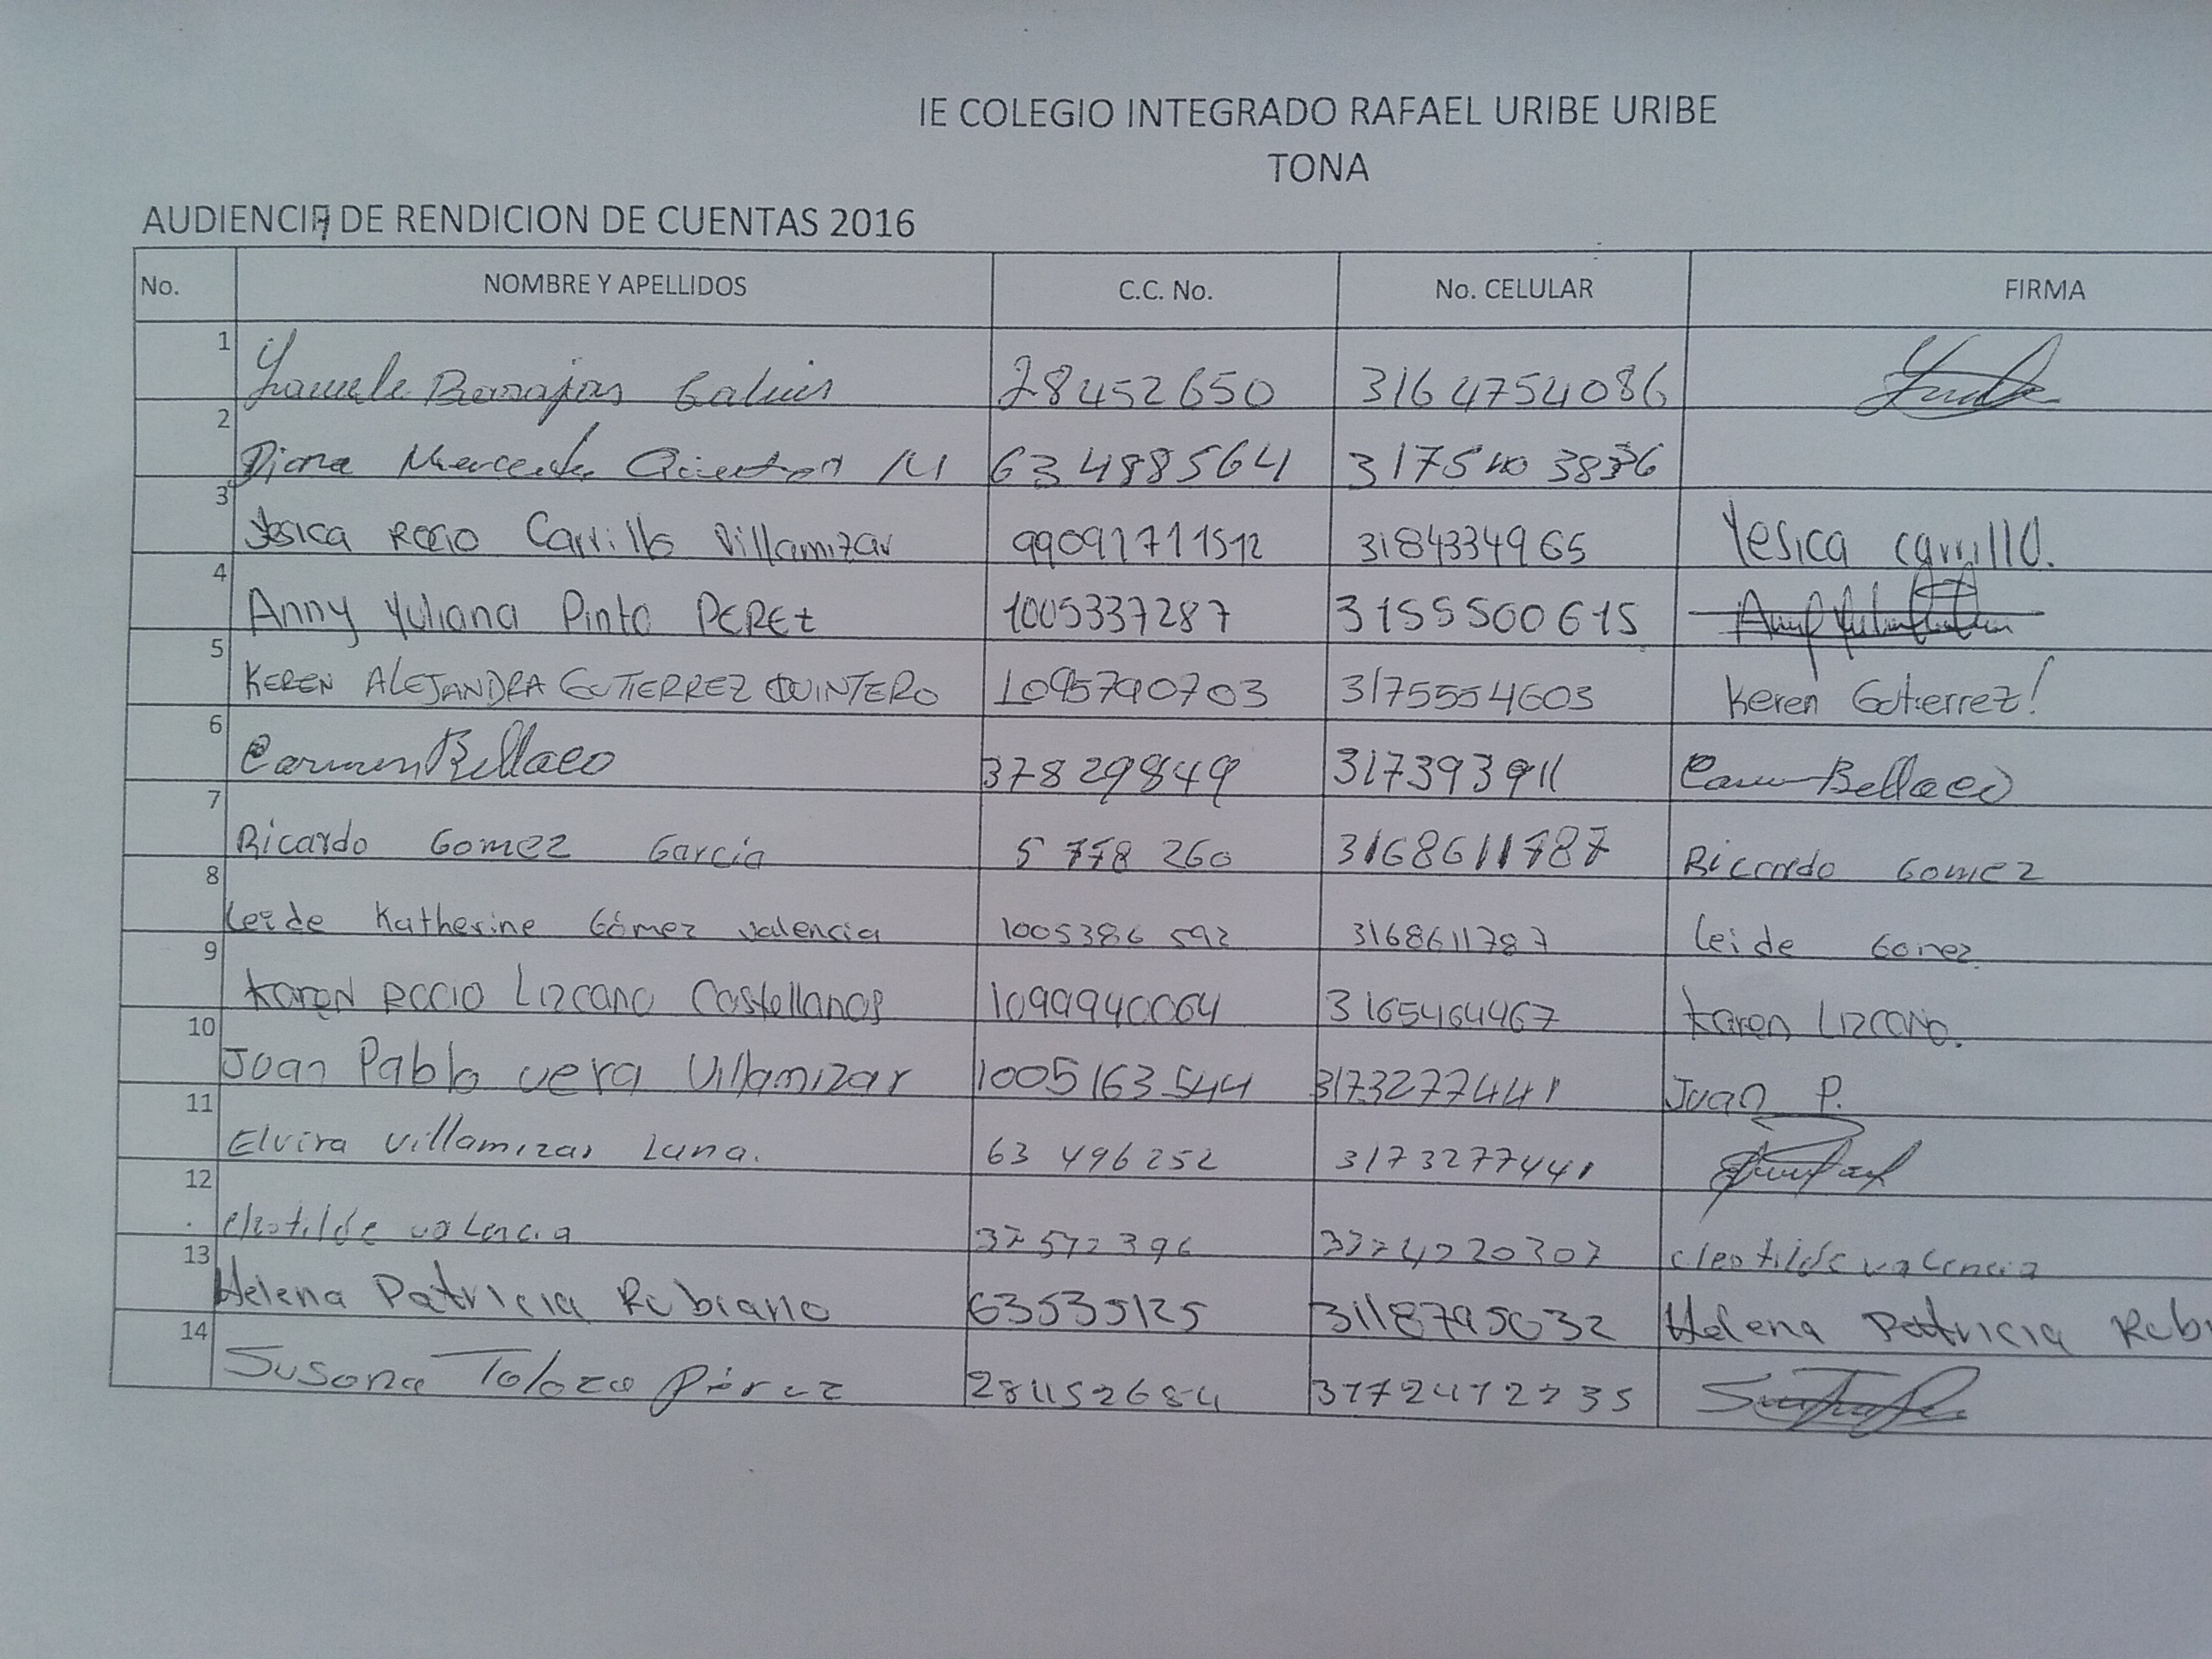 IE COLEGIO INTEGRADO RAFAEL URIBE URIBE
TONA
AUDIENCIA DE RENDICION DE CUENTAS 2016
No. NOMBRE Y APELLIDOS C.C. No. No. CELULAR FIRMA
1 Barajas Galvis 28452650 3164754086
2 Diana Mercedes 63488564 317540
3 Yesica ROCIO Carrillo Villamizar 99091711512 3184334965 Yesica carrillo.
4 Anny Yuliana Pinto PEREZ 1005337287 3155500615
5 KEREN ALEJANDRA GUTIERREZ QUINTERO 1095790703 3175554603 Keren Gutierrez!
6 Carmen Bellaco 37829849 317393911 Bellaco
7 Ricardo Gomez Garcia 5 778 260 3168611787 Ricardo Gomez
8 Leide Katherine Gómez Valencia 1005386 592 3168611787 Leide Gomez
9 Karen ROCIO Lizcano Castellanos 1099940064 3165464467 Karen Lizcano.
10 Juan Pablo vera Villamizar 1005163544 3173277441 Juan P.
11 Elvira Villamizar Luna. 63 496252 3173277441
12 cleotilde valencia 37572396 cleotilde valencia
13 Helena Patricia Rubiano 63535125 3118795032 Helena Patricia Rubi
14 Susana Toloza Pérez 28452684